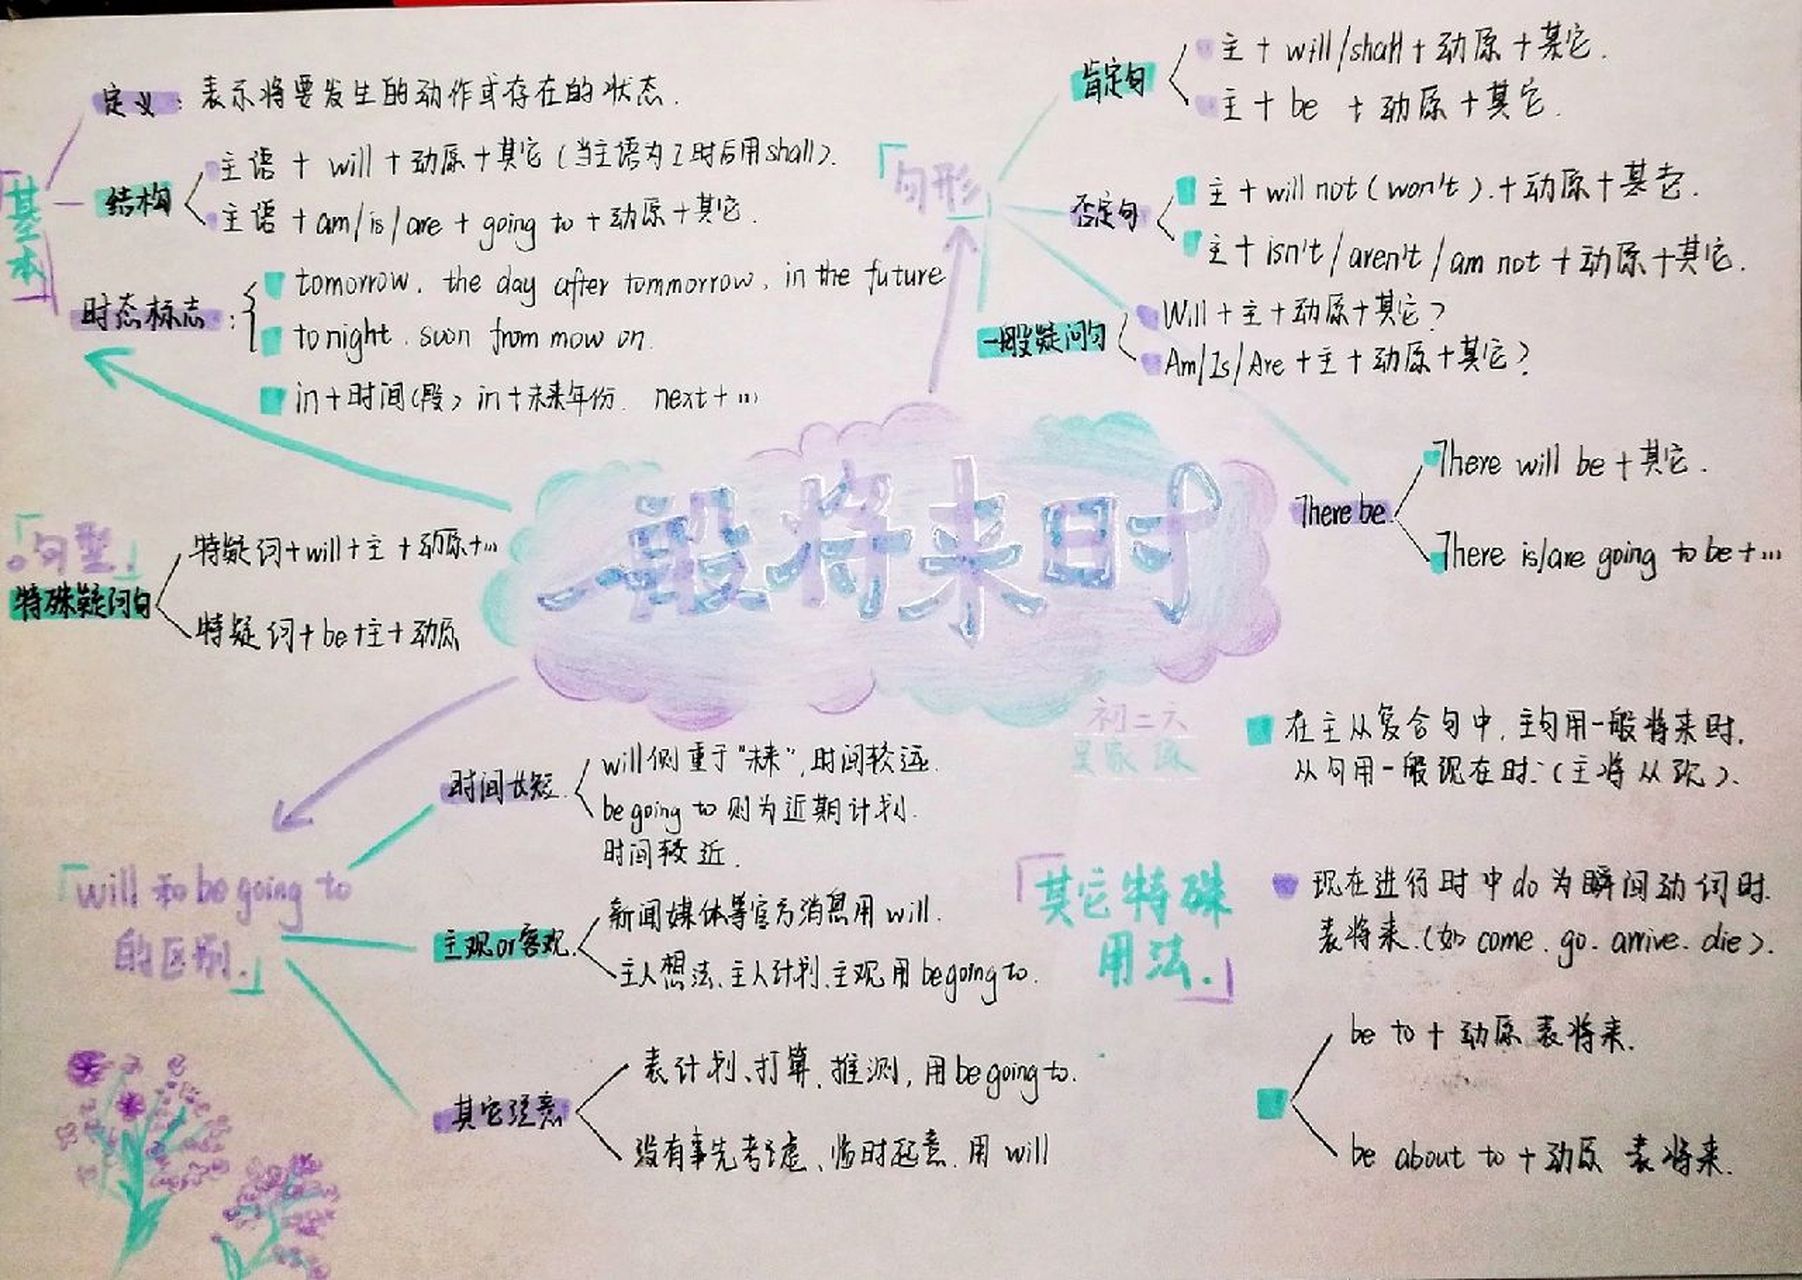 一般将来时
初二六
「基本」
定义：表示将要发生的动作或存在的状态.
结构
主语 + will + 动原 + 其它 (当主语为I时后用shall).
主语 + am/is/are + going to + 动原 + 其它.
时态标志：
tomorrow. the day after tommorrow. in the future
tonight. soon from mow on.
in+时间(段) in+未来年份. next+…
「句形」
肯定句
主 + will/shall + 动原 + 其它.
主 + be + 动原 + 其它.
否定句
主 + will not (won't). + 动原 + 其它.
主 + isn't / aren't / am not + 动原 + 其它.
一般疑问句
Will + 主 + 动原 + 其它?
Am/Is/Are + 主 + 动原 + 其它?
There be
There will be + 其它.
There is/are going to be + …
「句型」
特殊疑问句
特疑词+will+主+动原+…
特疑词+be+主+动原
「will 和 be going to
的区别.」
时间长短
will侧重于"未来",时间较远.
be going to 则为近期计划.
时间较近.
主观or客观
新闻媒体等官方消息用 will.
主人想法、主人计划、主观用 be going to.
其它注意
表计划、打算、推测, 用be going to.
没有事先考虑、临时起意. 用 will
「其它特殊
用法.」
在主从复合句中, 主句用一般将来时.
从句用一般现在时. (主将从现).
现在进行时中do为瞬间动词时.
表将来.(如 come. go. arrive. die).
be to + 动原 表将来.
be about to + 动原 表将来.